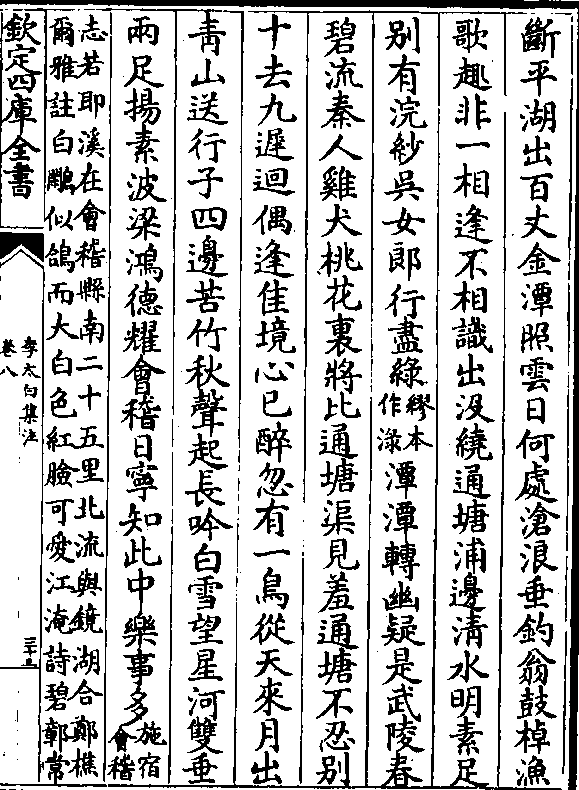 斷平湖出百丈金潭照雲日何處滄浪垂釣翁鼓棹漁
歌趣非一相逢不相識出没繞通塘浦邊清水明素足
别有浣紗吳女郎行盡緑繆本作渌潭潭轉幽疑是武陵春
碧流秦人雞犬桃花裏將比通塘渠見羞通塘不忍别
十去九遲迴偶逢佳境心已醉忽有一鳥從天來月出
青山送行子四邊苦竹秋聲起長吟白雪望星河雙垂
兩足揚素波梁鴻德耀會稽日寧知此中樂事多施宿會稽
志若耶溪在會稽縣南二十五里北流與鏡湖合鄭樵
爾雅註白鷴似鴿而大白色紅臉可愛江淹詩碧鄣常
欽定四庫全書
李太白集注
卷八
三十五